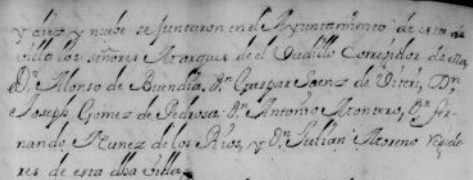 y diez y nuebe se juntaron en el Ayuntamiento de esta
villa los señores Marques de el Vadillo Corregidor de ella,
Dn. Alonso de Buendia, Dn. Gaspar Saenz de Viteri, Dn
Joseph Gomez de Pedrosa Dn. Antonio Montero, Dn. fer
nando Nunez de los Rios, y Dn. Julian Moreno regido
res de esta dha villa